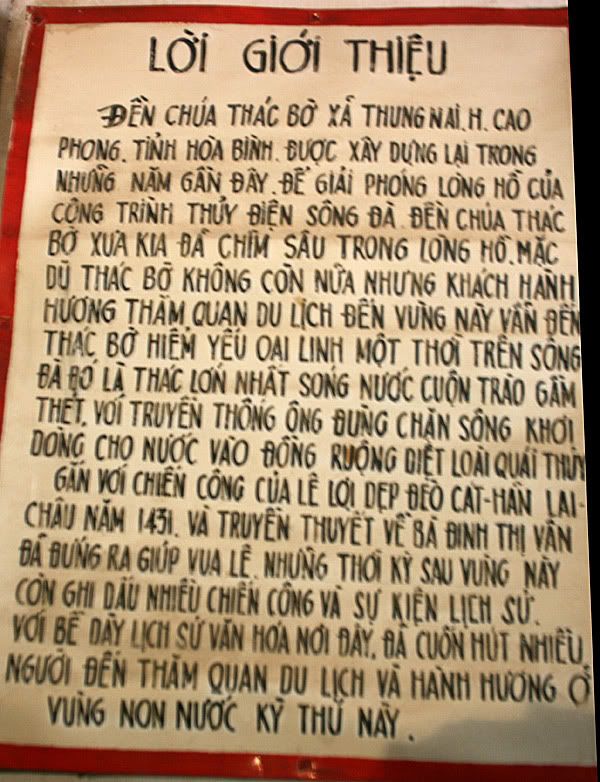 LỜI GIỚI THIỆU
ĐỀN CHÚA THÁC BỜ XÃ THUNG NAI. H. CAO
PHONG. TỈNH HÒA BÌNH. ĐƯỢC XÂY DỰNG LẠI TRONG
NHỮNG NĂM GẦN ĐÂY. ĐỂ GIẢI PHÓNG LÒNG HỒ CỦA
CÔNG TRÌNH THỦY ĐIỆN SÔNG ĐÀ. ĐỀN CHÚA THÁC
BỜ XƯA KIA ĐÃ CHÌM SÂU TRONG LÒNG HỒ. MẶC
DÙ THÁC BỜ KHÔNG CÒN NỮA NHƯNG KHÁCH HÀNH
HƯƠNG THĂM QUAN DU LỊCH ĐẾN VÙNG NÀY VẪN ĐẾN
THÁC BỜ HIỂM YẾU OAI LINH MỘT THỜI TRÊN SÔNG
ĐÀ ĐÓ LÀ THÁC LỚN NHẤT SÓNG NƯỚC CUỘN TRÀO GẦM
THÉT. VỚI TRUYỀN THỐNG ÔNG ĐÙNG CHẮN SÔNG KHƠI
DÒNG CHO NƯỚC VÀO ĐỒNG RUỘNG DIỆT LOÀI QUÁI THỦY
GẮN VỚI CHIẾN CÔNG CỦA LÊ LỢI DẸP ĐÈO CÁT-HÃN LAI-
CHÂU NĂM 1431. VÀ TRUYỀN THUYẾT VỀ BÀ ĐINH THỊ VÂN
ĐÃ ĐỨNG RA GIÚP VUA LÊ. NHỮNG THỜI KỲ SAU VÙNG NÀY
CÒN GHI DẤU NHIỀU CHIẾN CÔNG VÀ SỰ KIỆN LỊCH SỬ.
VỚI BỀ DÀY LỊCH SỬ VĂN HÓA NƠI ĐÂY. ĐÃ CUỐN HÚT NHIỀU
NGƯỜI ĐẾN THĂM QUAN DU LỊCH VÀ HÀNH HƯƠNG Ở
VÙNG NON NƯỚC KỲ THÚ NÀY.